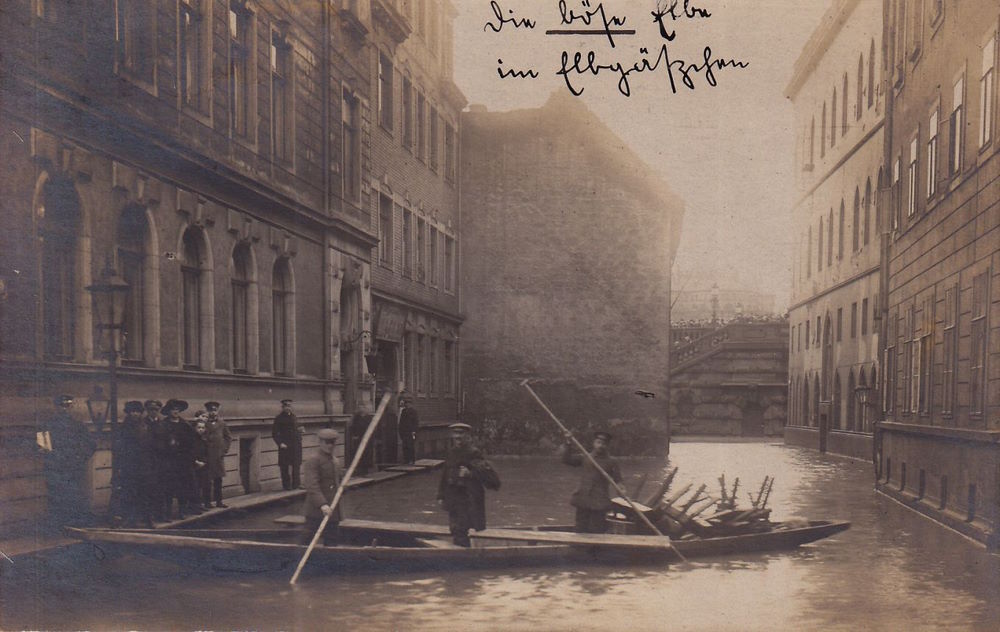 Die böse Elbe
im Elbgäßchen